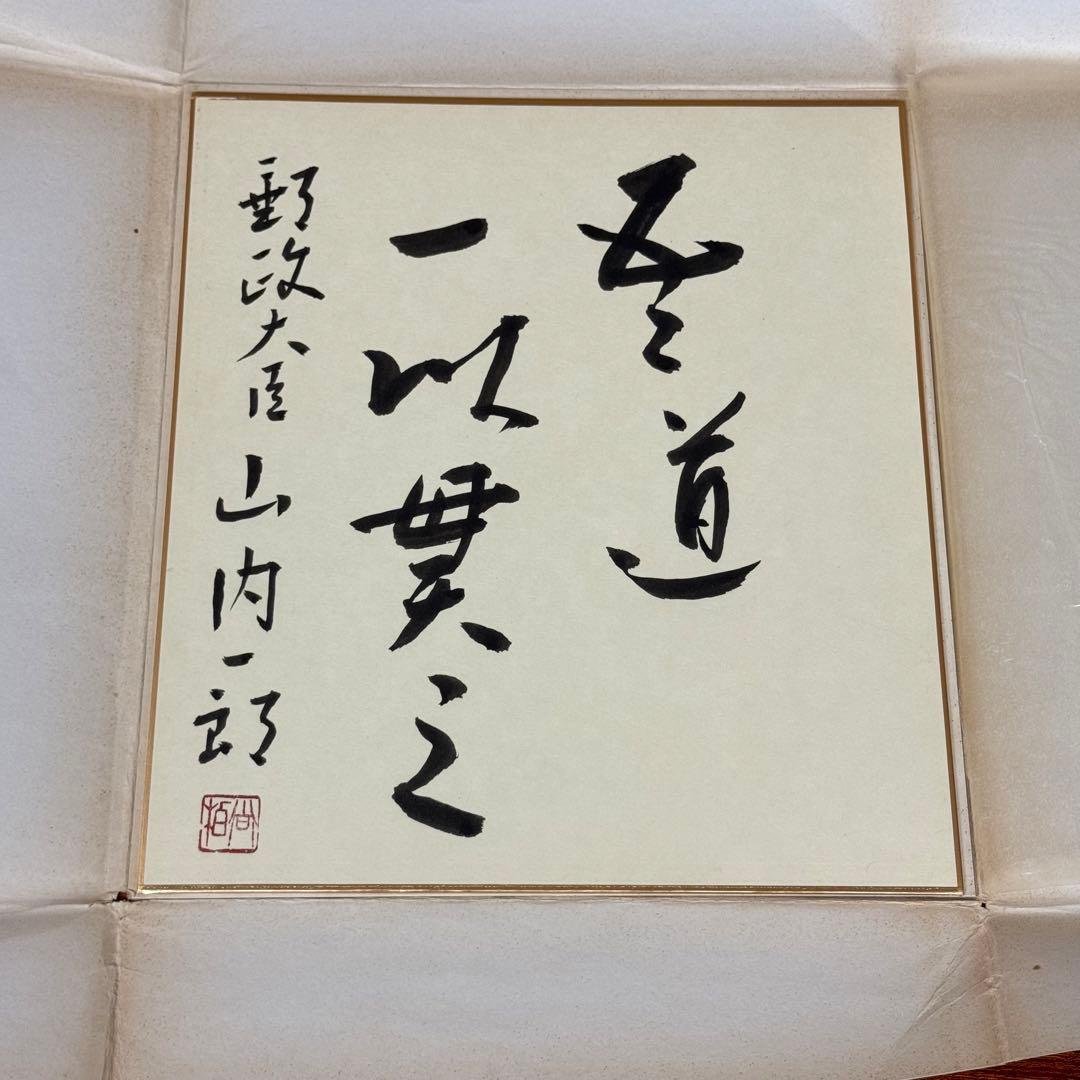 吾道
一以貫之
郵政大臣 山内一郎
尚栢